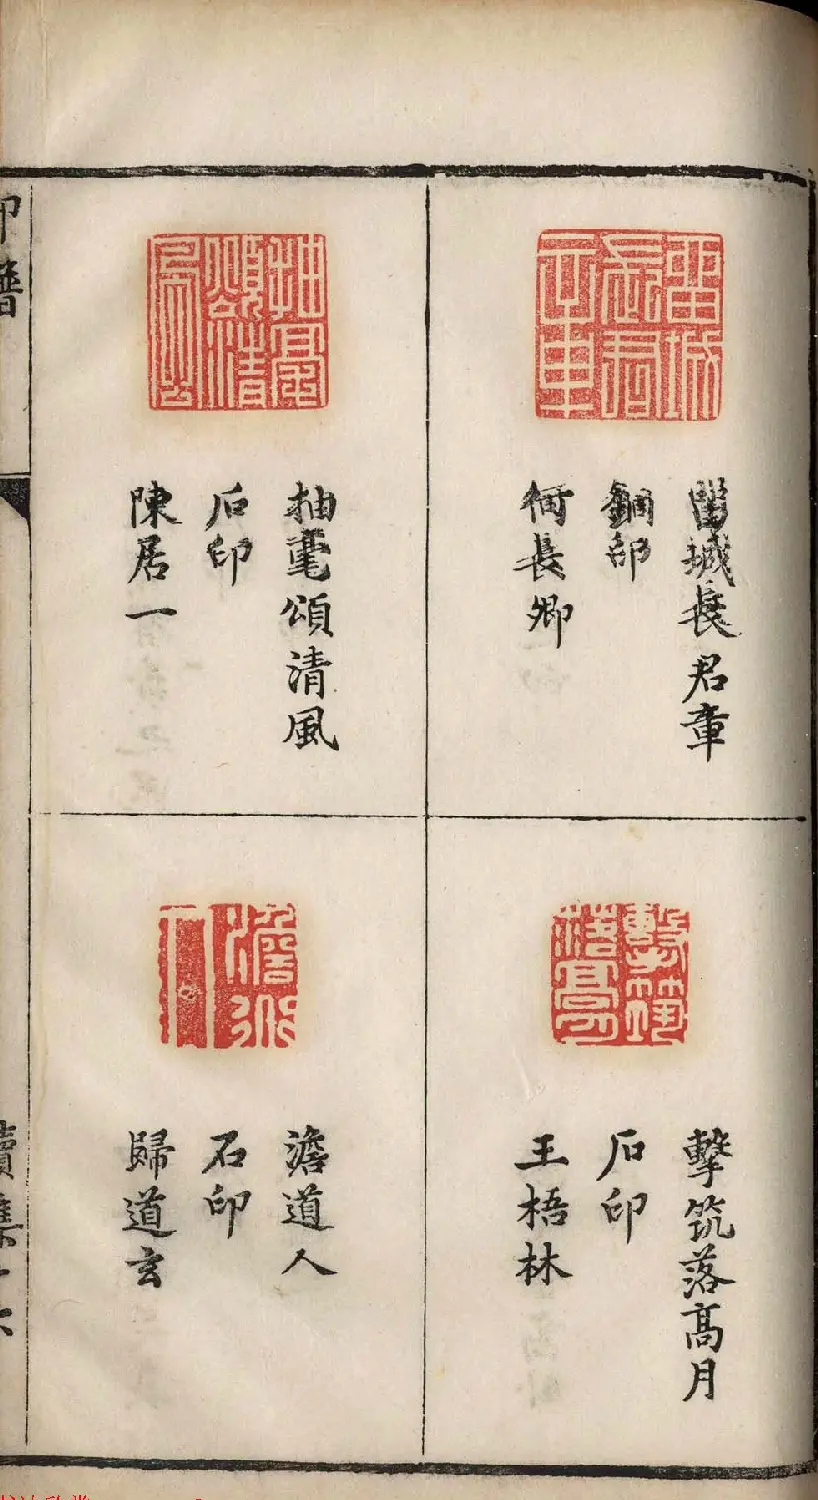 留城長君章
銅印
何長卿
抽毫頌清風
石印
陳居一
擊筑落高月
石印
王梧林
澹道人
石印
歸道玄
印譜
續集